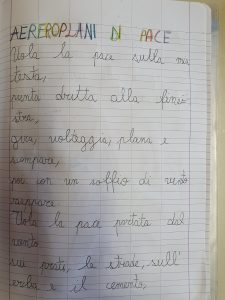 AEREROPLANI DI PACE
Vola la pace sulla mia
testa,
punta dritta alla fines
stra,
gira, volteggia, plana e
scompare,
poi con un soffio di vento
riappare.
Vola la pace portata dal
vento
sui prati, le strade, sull'
erba e il cemento,